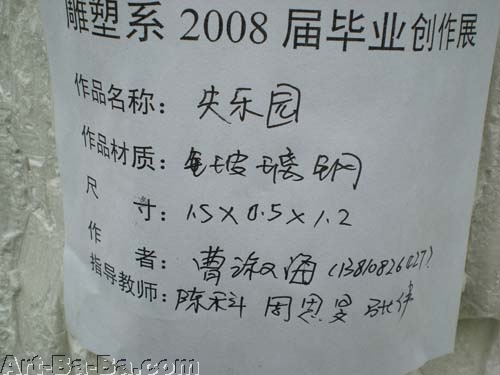 雕塑系 2008 届毕业创作展
作品名称：失乐园
作品材质：玻璃钢
尺寸：1.5×0.5×1.2
作者：曹淑海 (13810826027)
指导教师：陈科 周思旻 张伟
Art-Ba-Ba.com